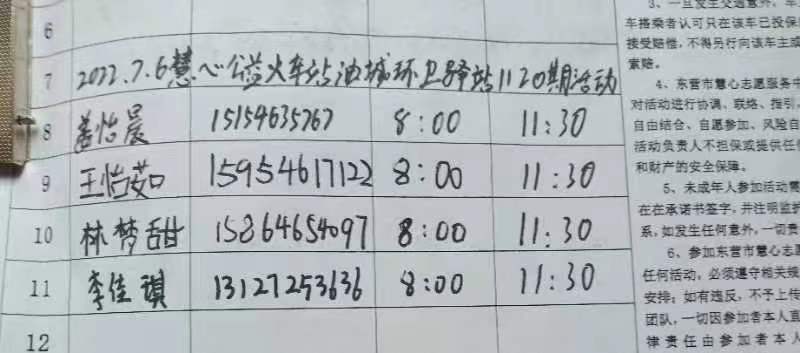 6
7 2022.7.6慧心公益火车站油城环卫驿站1120期活动
8 怡晨 15154635767 8:00 11:30
9 王怡茹 15954617122 8:00 11:30
10 林梦甜 15864654097 8:00 11:30
11 李佳琪 13127253636 8:00 11:30
12
3、一旦发生交通意外，车
车搭乘者认可只在该车已投保
接受赔偿，不得另行向该车主或
索赔。
4、东营市慧心志愿服务中
对活动进行协调、联络、指引，
自由结合、自愿参加、风险自
活动负责人不担保或提供任
和财产的安全保障。
5、未成年人参加活动需
在在承诺书签字，并注明监护
系，如发生任何意外，一切责
6、参加东营市慧心志愿
任何活动，必须遵守相关规
安排；如有违反，不予上传
团队，一切因参加者本人直
律责任由参加者本人